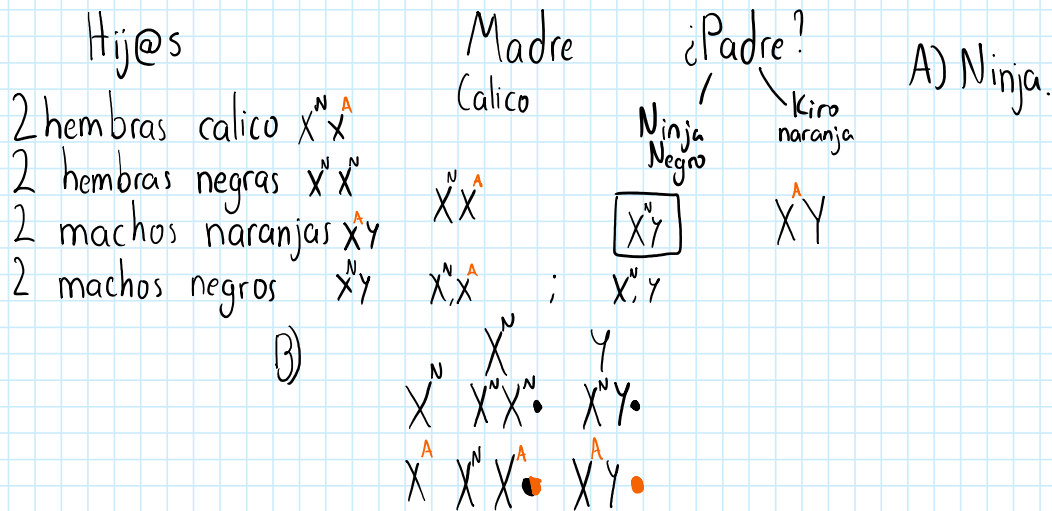 Hij@s
2 hembras calico X^N X^A
2 hembras negras X^N X^N
2 machos naranjas X^A Y
2 machos negros X^N Y
Madre
Calico
X^N X^A
X^N, X^A ; X^N, Y
¿Padre?
Ninja
Negro
X^N Y
Kiro
naranja
X^A Y
A) Ninja.
B)
X^N Y
X^N X^N X^N X^N Y
X^A X^N X^A X^A Y